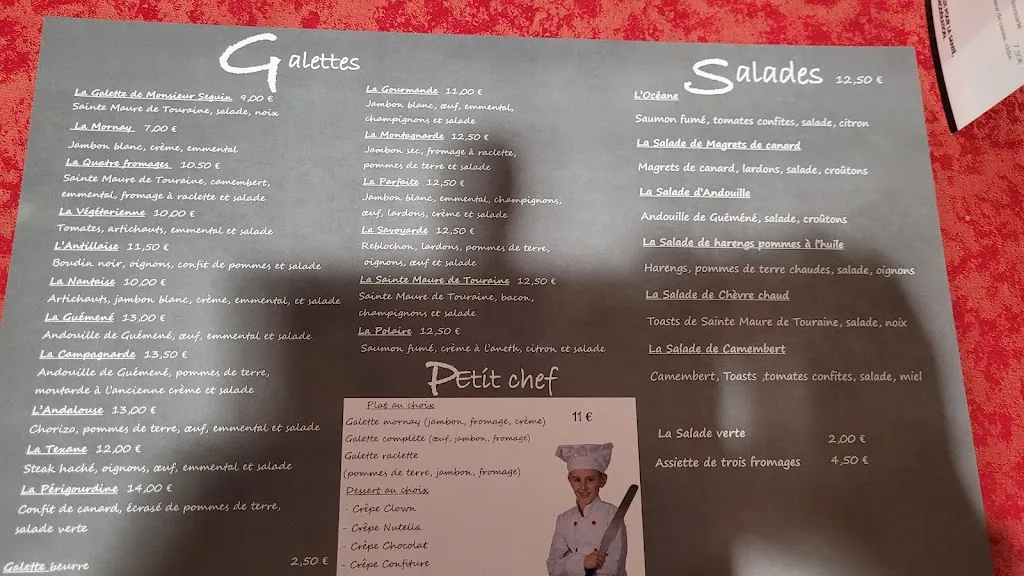 Galettes
La Galette de Monsieur Seguin 9,00 €
Sainte Maure de Touraine, salade, noix
La Mornay 7,00 €
Jambon blanc, crème, emmental
La Quatre fromages 10.50 €
Sainte Maure de Touraine, camembert,
emmental, fromage à raclette et salade
La Végétarienne 10,00 €
Tomates, artichauts, emmental et salade
L'Antillaise 11,50 €
Boudin noir, oignons, confit de pommes et salade
La Nantaise 10,00 €
Artichauts, jambon blanc, crème, emmental, et salade
La Guémené 13,00 €
Andouille de Guémené, œuf, emmental et salade
La Campagnarde 13,50 €
Andouille de Guémené, pommes de terre,
moutarde à l'ancienne crème et salade
L'Andalouse 13,00 €
Chorizo, pommes de terre, œuf, emmental et salade
La Texane 12,00 €
Steak haché, oignons, œuf, emmental et salade
La Périgourdine 14,00 €
Confit de canard, écrasé de pommes de terre,
salade verte
Galette beurre 2,50 €
La Gourmande 11,00 €
Jambon blanc, œuf, emmental,
champignons et salade
La Montagnarde 12,50 €
Jambon sec, fromage à raclette,
pommes de terre et salade
La Parfaite 12,50 €
Jambon blanc, emmental, champignons,
œuf, lardons, crème et salade
La Savoyarde 12,50 €
Reblochon, lardons, pommes de terre,
oignons, œuf et salade
La Sainte Maure de Touraine 12,50 €
Sainte Maure de Touraine, bacon,
champignons et salade
La Polaire 12,50 €
Saumon fumé, crème à l'aneth, citron et salade
Petit chef
Plat au choix
11 €
Galette mornay (jambon, fromage, crème)
Galette complète (œuf, jambon, fromage)
Galette raclette
(pommes de terre, jambon, fromage)
Dessert au choix
- Crêpe Clown
- Crêpe Nutella
- Crêpe Chocolat
- Crêpe Confiture
Salades 12,50 €
L'Océane
Saumon fumé, tomates confites, salade, citron
La Salade de Magrets de canard
Magrets de canard, lardons, salade, croûtons
La Salade d'Andouille
Andouille de Guémené, salade, croûtons
La Salade de harengs pommes à l'huile
Harengs, pommes de terre chaudes, salade, oignons
La Salade de Chèvre chaud
Toasts de Sainte Maure de Touraine, salade, noix
La Salade de Camembert
Camembert, Toasts ,tomates confites, salade, miel
La Salade verte 2,00 €
Assiette de trois fromages 4,50 €